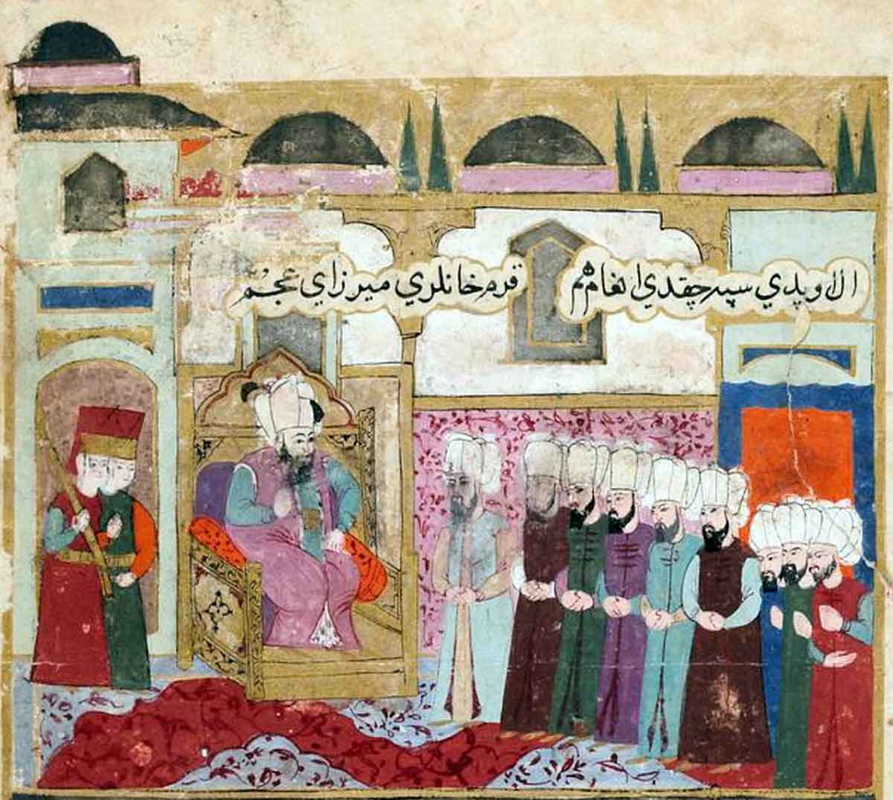 ال اوپدي سپه چقدي انعام هم قرم خانلري ميرزاي عجم